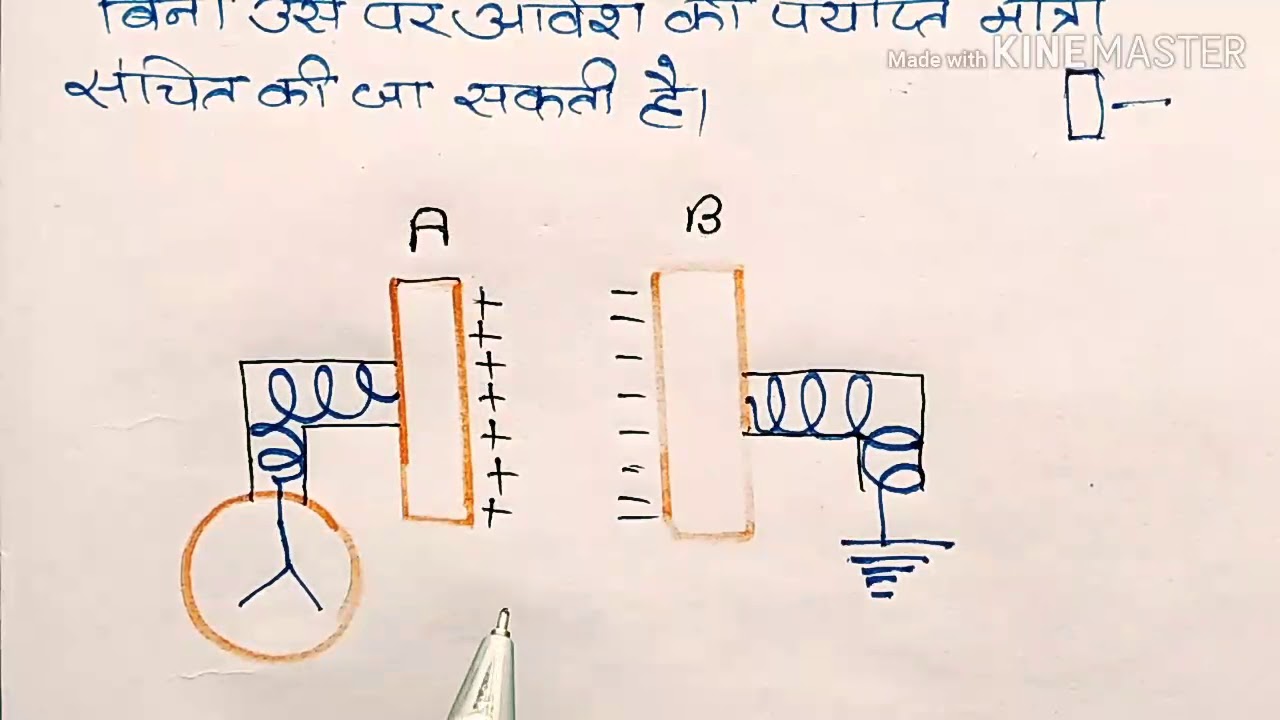 बिना उस पर आवेश की पर्याप्त मात्रा
Made with KINEMASTER
संचित की जा सकती है।
A
B
+
+
+
+
+
+
+